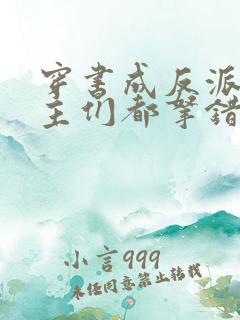 穿书成反派
主们都拏错
小言999
未经同意禁止转载